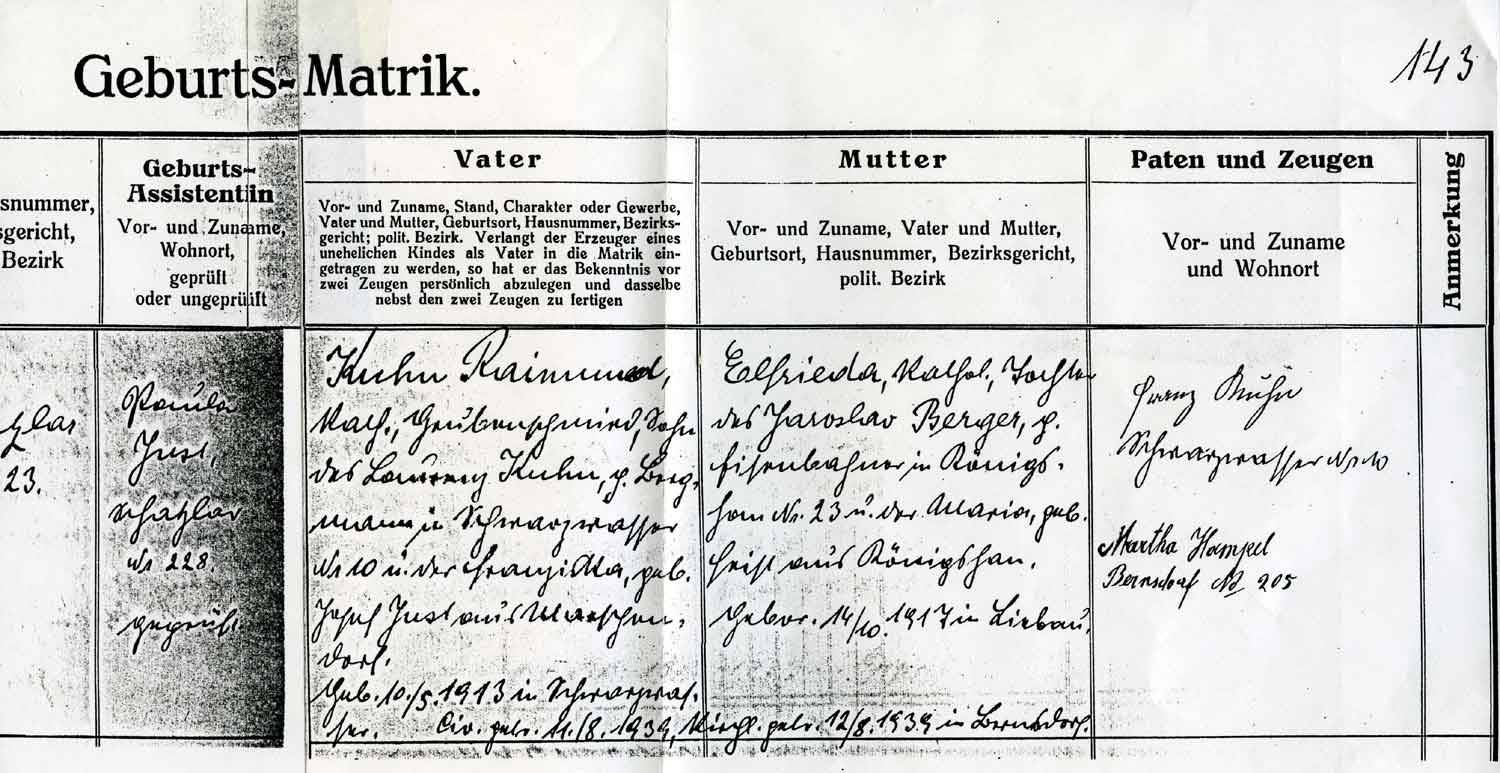 Geburts-Matrik.
143
snummer,
sgericht,
Bezirk
Geburts-
Assistentiin
Vor- und Zuname,
Wohnort,
geprüft
oder ungeprüft
Vater
Vor- und Zuname, Stand, Charakter oder Gewerbe,
Vater und Mutter, Geburtsort, Hausnummer, Bezirks-
gericht; polit. Bezirk. Verlangt der Erzeuger eines
unehelichen Kindes als Vater in die Matrik ein-
getragen zu werden, so hat er das Bekenntnis vor
zwei Zeugen persönlich abzulegen und dasselbe
nebst den zwei Zeugen zu fertigen
Mutter
Vor- und Zuname, Vater und Mutter,
Geburtsort, Hausnummer, Bezirksgericht,
polit. Bezirk
Paten und Zeugen
Vor- und Zuname
und Wohnort
Anmerkung
tzlar
23.
Paula
Just,
Schatzlar
Nr 228.
geprüft.
Kuhn Raimund,
Kath., Grubenschmied, Sohn
des Laurenz Kuhn, p. Berg-
mann in Schwarzwasser
Nr 10 u. der Franziska, geb.
Josef Just aus Marschen-
dorf.
Geb. 10./5. 1913 in Schwarzwas-
ser. Civ. getr. 11./8. 1939, Kirchl. getr. 12/8. 1939 in Bernsdorf.
Elfrieda, Kathol., Tochter
des Jaroslav Berger, p.
Eisenbahner in Königs-
han Nr. 23 u. der Maria, geb.
aus Königshan.
Gebor. 14/10. 1917 in Liebau.
Franz Kuhn
Schwarzwasser Nr 10
Martha Hampel
Bernsdorf No 205